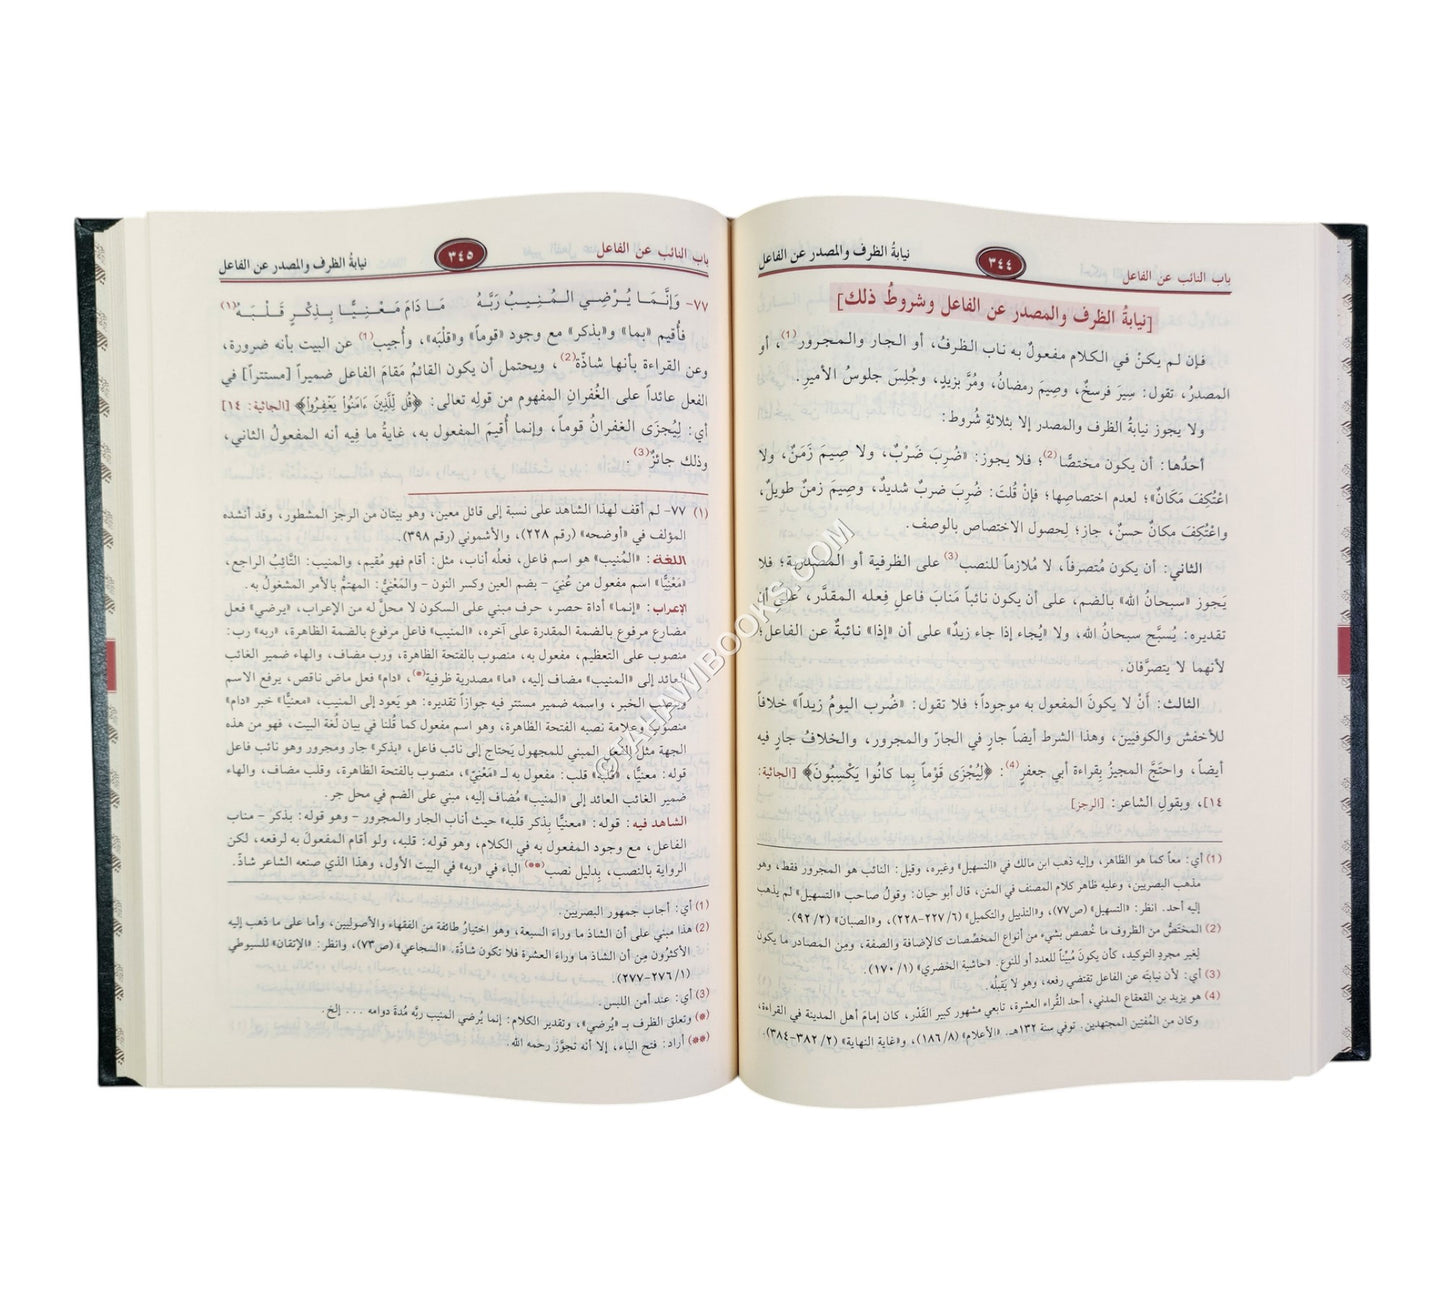 باب النائب عن الفاعل
٣٤٤
نيابةُ الظرف والمصدر عن الفاعل
[نيابةُ الظرف والمصدر عن الفاعل وشروطُ ذلك]
فإن لم يكنْ في الكلام مفعولٌ به ناب الظرفُ، أو الجار والمجرور(1)، أو
المصدرُ، تقول: سِيرَ فرسخٌ، وصِيمَ رمضانُ، ومُرَّ بزيدٍ، وجُلِسَ جلوسُ الأميرِ.
ولا يجوز نيابةُ الظرف والمصدر إلا بثلاثةِ شُروط:
أحدُها: أن يكون مختصًّا(2)؛ فلا يجوز: «ضُرِبَ ضَرْبٌ، ولا صِيمَ زَمَنٌ، ولا
اعْتُكِفَ مَكَانٌ»؛ لعدم اختصاصها؛ فإنْ قُلتَ: ضُرِبَ ضربٌ شديدٌ، وصِيمَ زمنٌ طويلٌ،
واعْتُكِفَ مكانٌ حسنٌ، جاز؛ لِحصول الاختصاص بالوصف.
الثاني: أن يكون مُتصرفاً، لا مُلازماً للنصب(3) على الظرفية أو المصدرية؛ فلا
يَجوز «سبحانُ الله» بالضم، على أن يكون نائباً مَنابَ فاعلِ فِعله المقدَّر، على أن
تقديره: يُسبَّح سبحانُ الله، ولا «يُجاء إذا جاء زيدٌ» على أن «إذا» نائبةٌ عن الفاعل؛
لأنهما لا يتصرَّفان.
الثالث: أنْ لا يكونَ المفعول به موجوداً؛ فلا تقول: «ضُرب اليومُ زيداً» خلافاً
للأخفش والكوفيين، وهذا الشرط أيضاً جارٍ في الجارّ والمجرور، والخلافُ جارٍ فيه
أيضاً، واحتَجَّ المجيزُ بِقراءة أبي جعفرٍ(4): ﴿لِيُجْزَى قَوْماً بِما كانُوا يَكْسِبُونَ﴾ [الجاثية:
١٤]، وبقولِ الشاعر: [الرجز]
(1) أي: معاً كما هو الظاهر، وإليه ذهب ابن مالك في «التسهيل» وغيره، وقيل: النائب هو المجرور فقط، وهو
مذهب البصريين، وعليه ظاهر كلام المصنف في المتن، قال أبو حيان: وقولُ صاحب «التسهيل» لم يذهب
إليه أحد. انظر: «التسهيل» (ص٧٧)، و«التذييل والتكميل» (٦/ ٢٢٧-٢٢٨)، و«الصبان» (٢/ ٩٢).
(2) المختَصُّ من الظروف ما خُصص بشيء من أنواع المخصِّصات كالإضافة والصفة، ومِن المصادر ما يكون
لِغير مجردِ التوكيد، كأن يكونَ مُبيِّناً للعدد أو للنوع. «حاشية الخضري» (١/ ١٧٠).
(3) أي: لأن نيابتَه عن الفاعل تقتضي رفعه، وهو لا يَقبلُه.
(4) هو يزيد بن القعقاع المدني، أحد القُراء العشرة، تابعي مشهور كبير القَدْر، كان إمامَ أهل المدينة في القراءة،
وكان من المُفتين المجتهدين. توفي سنة ١٣٢هـ. «الأعلام» (٨/ ١٨٦)، و«غاية النهاية» (٢/ ٣٨٢-٣٨٤).
باب النائب عن الفاعل
٣٤٥
نيابةُ الظرف والمصدر عن الفاعل
٧٧- وَإِنَّمَا يُرْضِي المُنِيبُ رَبَّهُ مَا دَامَ مَعْنِيًّا بِذِكْرٍ قَلْبَهُ(١)
فأُقيم «بما» و«بذكر» مع وجود «قوماً» و«قلْبَه»، وأُجيب(1) عن البيت بأنه ضرورة،
وعن القراءة بأنها شاذّة(2)، ويحتمل أن يكون القائمُ مَقامَ الفاعل ضميراً [مستتراً] في
الفعل عائداً على الغُفرانِ المفهوم من قولِه تعالى: ﴿قُل لِّلَّذِينَ ءَامَنُوا۟ يَغْفِرُوا۟﴾ [الجاثية: ١٤]
أي: لِيُجزَى الغفرانُ قوماً، وإنما أُقيمَ المفعول به، غايةُ ما فيه أنه المفعولُ الثاني،
وذلك جائزٌ(3).
(١) ٧٧- لم أقف لهذا الشاهد على نسبة إلى قائل معين، وهو بيتان من الرجز المشطور، وقد أنشده
المؤلف في «أوضحه» (رقم ٢٢٨)، والأشموني (رقم ٣٩٨).
اللغة: «المُنيب» هو اسم فاعل، فعلُه أناب، مثل: أقام فهو مُقيم، والمنيب: التَّائِبُ الراجع،
«مَعْنِيًّا» اسم مفعول من عُنيَ - بضم العين وكسر النون - والمَعْنِيُّ: المهتمُّ بالأمر المشغولُ به.
الإعراب: «إنما» أداة حصر، حرف مبني على السكون لا محلّ له من الإعراب، «يرضي» فعل
مضارع مرفوع بالضمة المقدرة على آخره، «المنيب» فاعل مرفوع بالضمة الظاهرة، «ربه» رب:
منصوب على التعظيم، مفعول به، منصوب بالفتحة الظاهرة، ورب مضاف، والهاء ضمير الغائب
العائد إلى «المنيب» مضاف إليه، «ما» مصدرية ظرفية(*)، «دام» فعل ماض ناقص، يرفع الاسم
وينصب الخبر، واسمه ضمير مستتر فيه جوازاً تقديره: هو يَعود إلى المنيب، «معنيًّا» خبر «دام»
منصوب وعلامة نصبه الفتحة الظاهرة، وهو اسم مفعول كما قُلنا في بيان لُغة البيت، فهو من هذه
الجهة مثل الفعل المبني للمجهول يَحتاج إلى نائب فاعل، «بذكر» جار ومجرور وهو نائب فاعل
قوله: معنيًّا، «قلبه» قلب: مفعول به لـ «مَعْنيّ»، منصوب بالفتحة الظاهرة، وقلب مضاف، والهاء
ضمير الغائب العائد إلى «المنيب» مُضاف إليه، مبني على الضم في محل جر.
الشاهد فيه: قوله: «معنيًّا بِذكر قلبه» حيث أنابَ الجار والمجرور - وهو قوله: بذكر - مناب
الفاعل، مع وجود المفعول به في الكلام، وهو قوله: قلبه، ولو أقام المفعولَ به لرفعه، لكن
الرواية بالنصب، بِدليل نصب(**) الباء في «ربه» في البيت الأول، وهذا الذي صنعه الشاعر شاذّ.
(1) أي: أجاب جمهور البصريين.
(2) هذا مبني على أن الشاذ ما وراءَ السبعة، وهو اختيارُ طائفة من الفقهاء والأصوليين، وأما على ما ذهب إليه
الأكثرُون مِن أن الشاذ ما وراءَ العشرة فلا تكون شاذّة. «السجاعي» (ص٧٣)، وانظر: «الإتقان» للسيوطي
(١/ ٢٧٦-٢٧٧).
(3) أي: عند أمن اللبس.
(*) وتعلق الظرف بـ «يُرضي»، وتقدير الكلام: إنما يُرضي المنيب ربَّه مُدةَ دوامه ... إلخ.
(**) أراد: فتح الباء، إلا أنه تجوَّز رحمه الله.
©TAHAWIBOOKS.COM